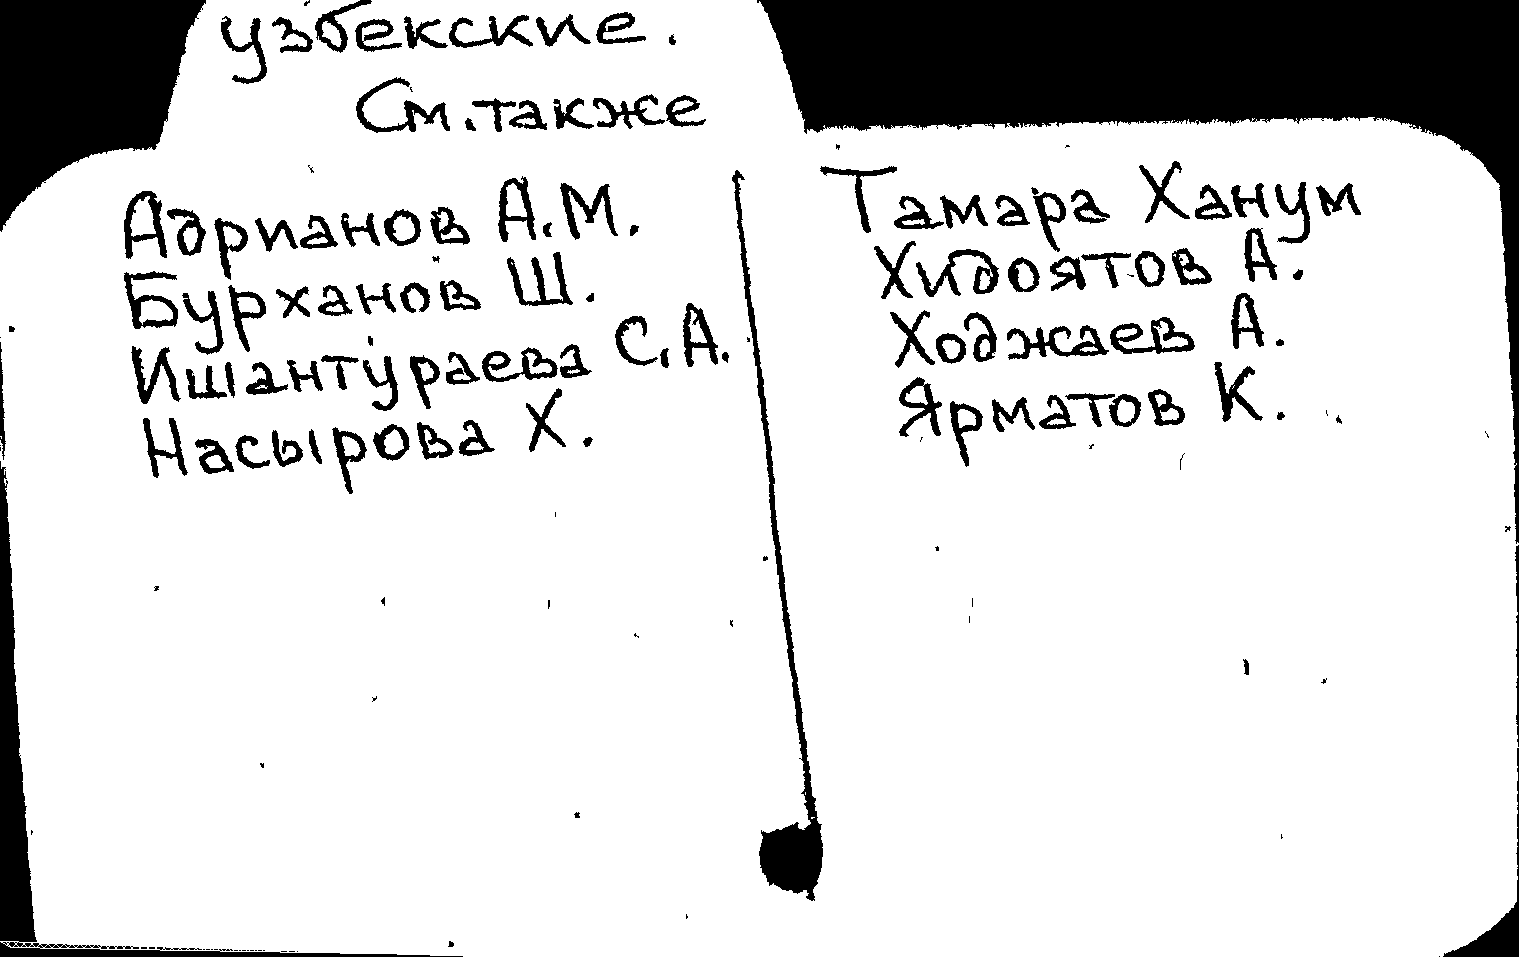 узбекские.
См. также
Адрианов А.М.
Бурханов Ш.
Ишантураева С.А.
Насырова Х.
Тамара Ханум
Хидоятов А.
Ходжаев А.
Ярматов К.